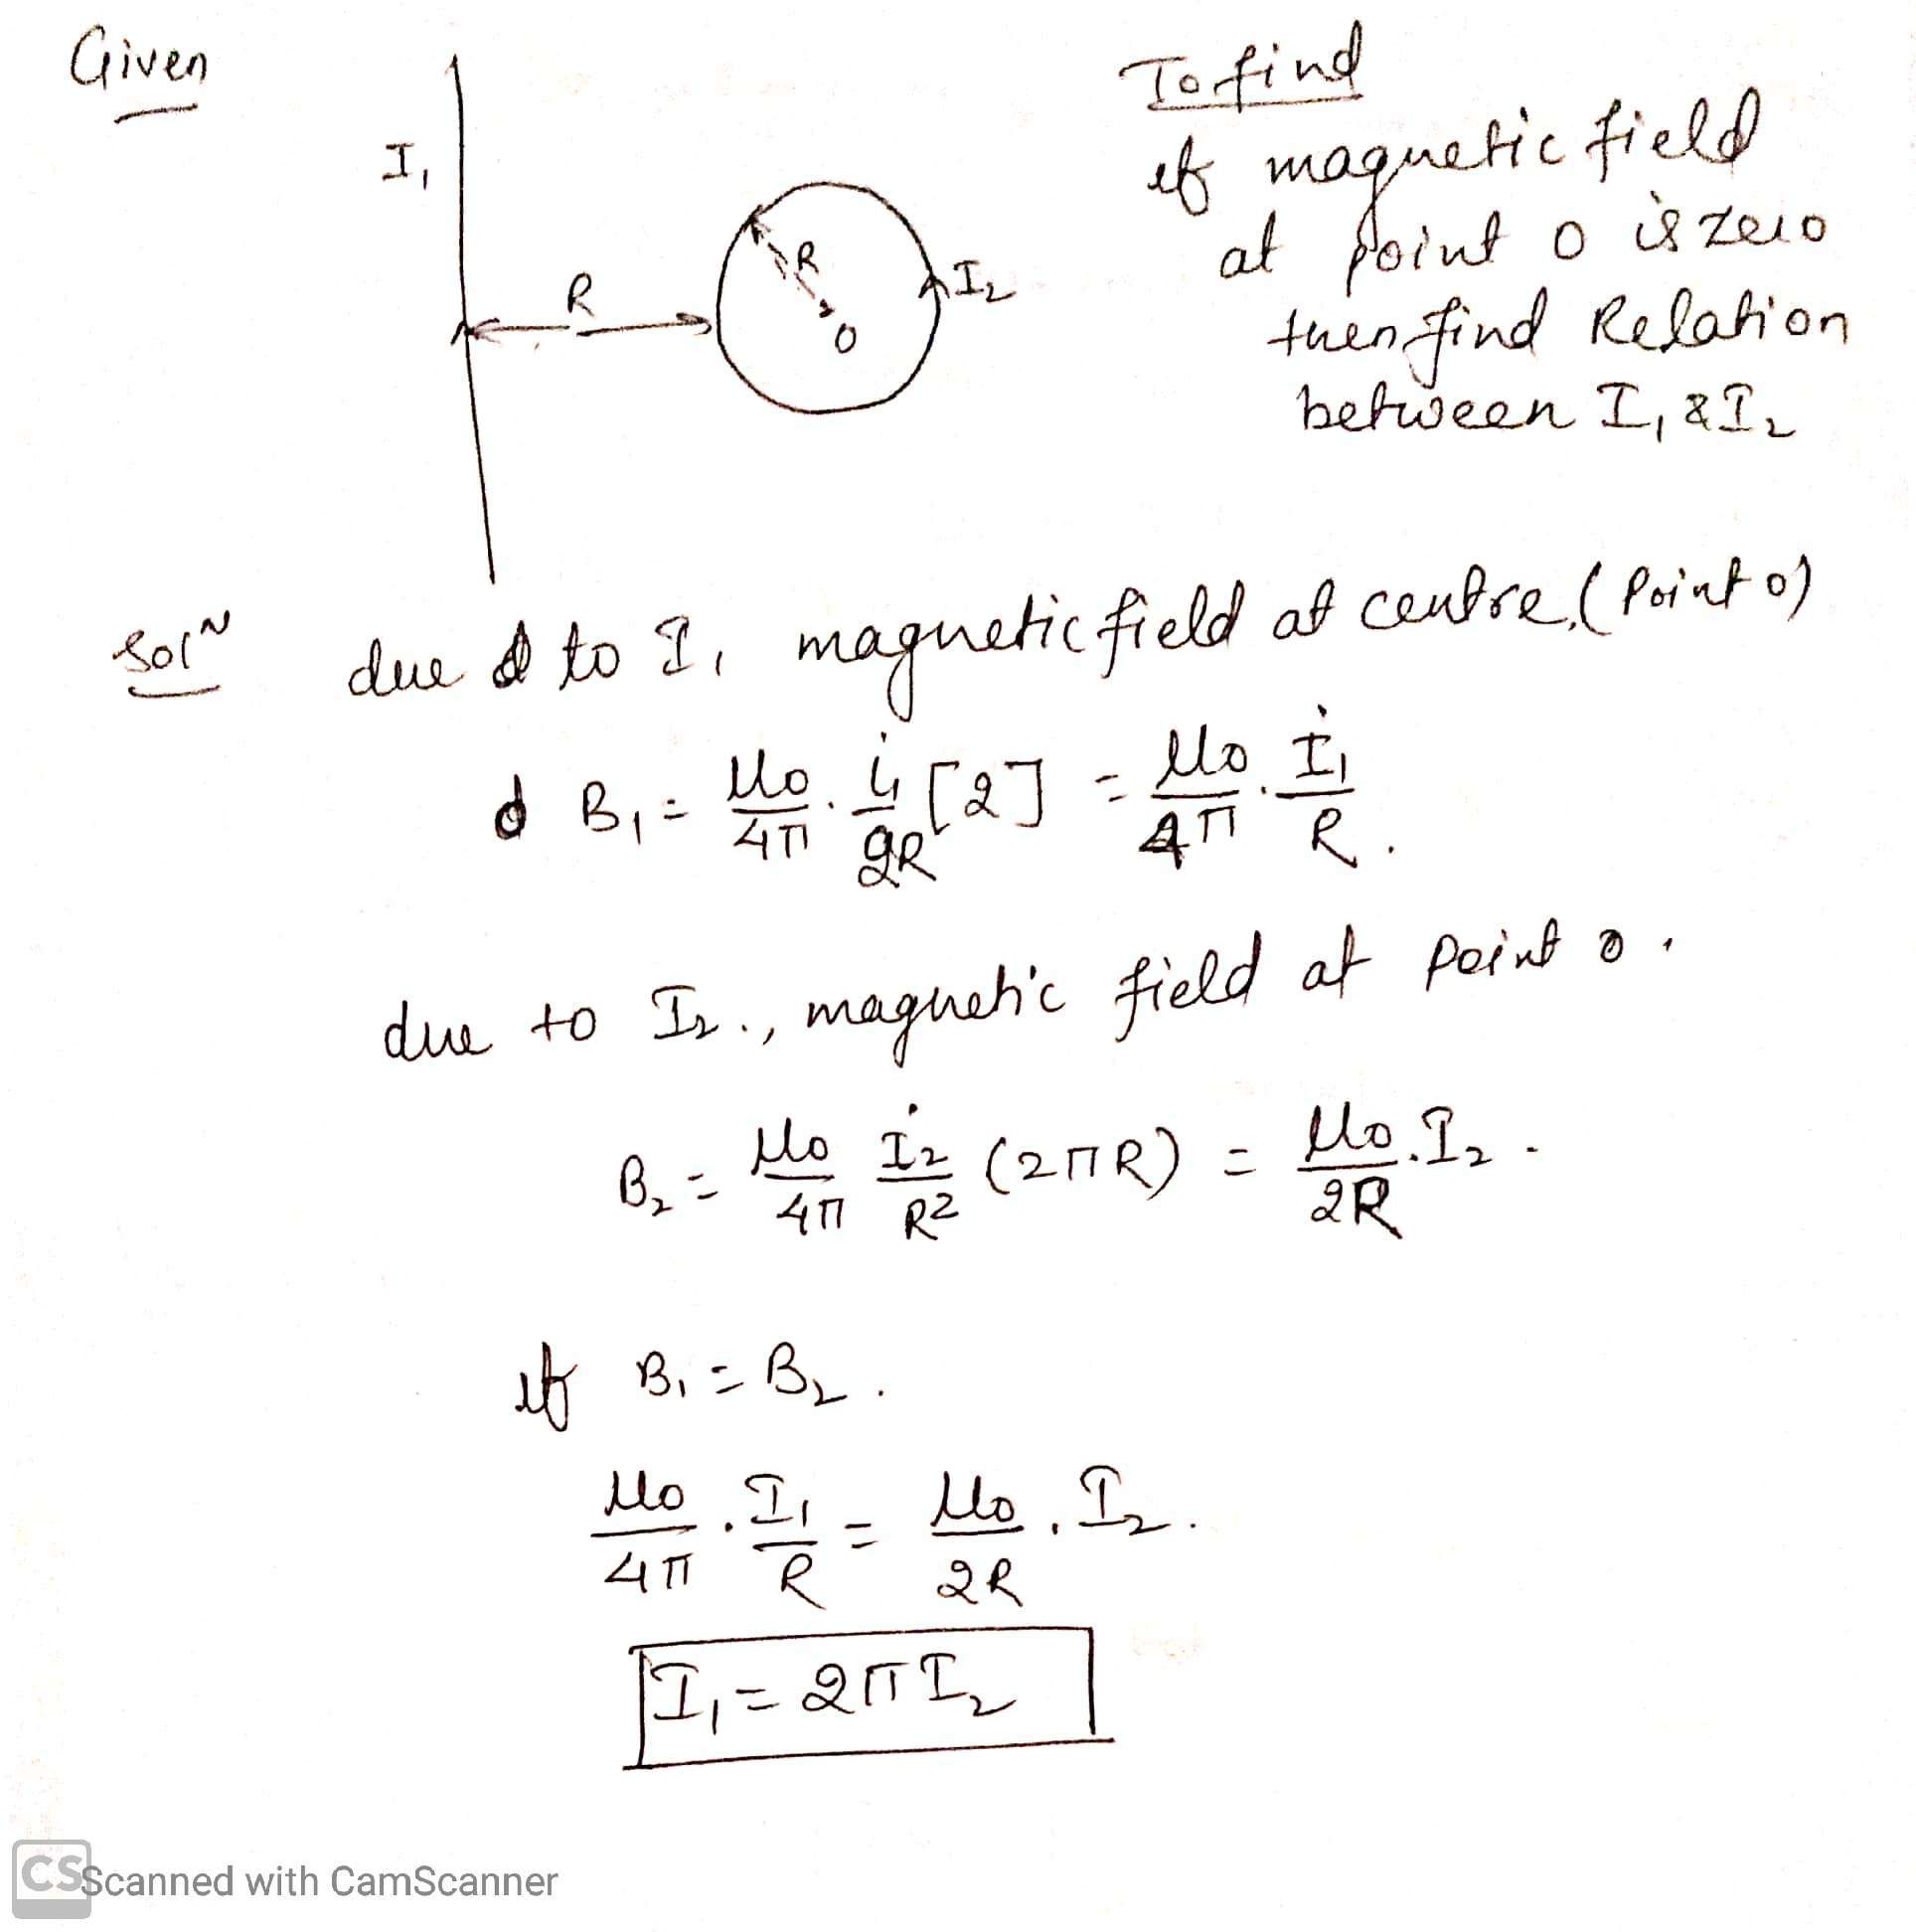 Given
To find
if magnetic field
at point o is zero
then find Relation
between I₁ & I₂
I₁
R
R
o
I₂
Solⁿ due to I₁ magnetic field at centre (Point o)
B₁ = μ₀/4π · i₁/2R [2] = μ₀/4π · I₁/R.
due to I₂., magnetic field at point o.
B₂ = μ₀/4π I₂/R² (2πR) = μ₀/2R . I₂ .
if B₁ = B₂ .
μ₀/4π . I₁/R = μ₀/2R . I₂ .
I₁ = 2π I₂
CS Scanned with CamScanner